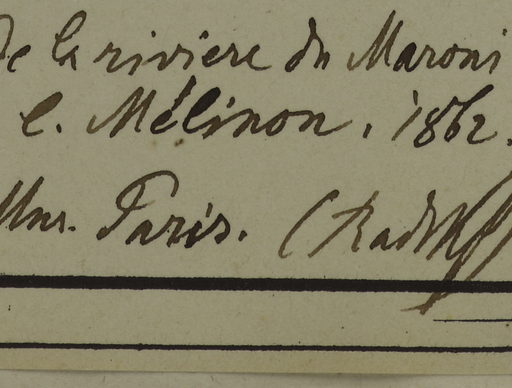 de la riviere du Maroni
e. Mélinon. 1862.
Mus. Paris. (Radlk